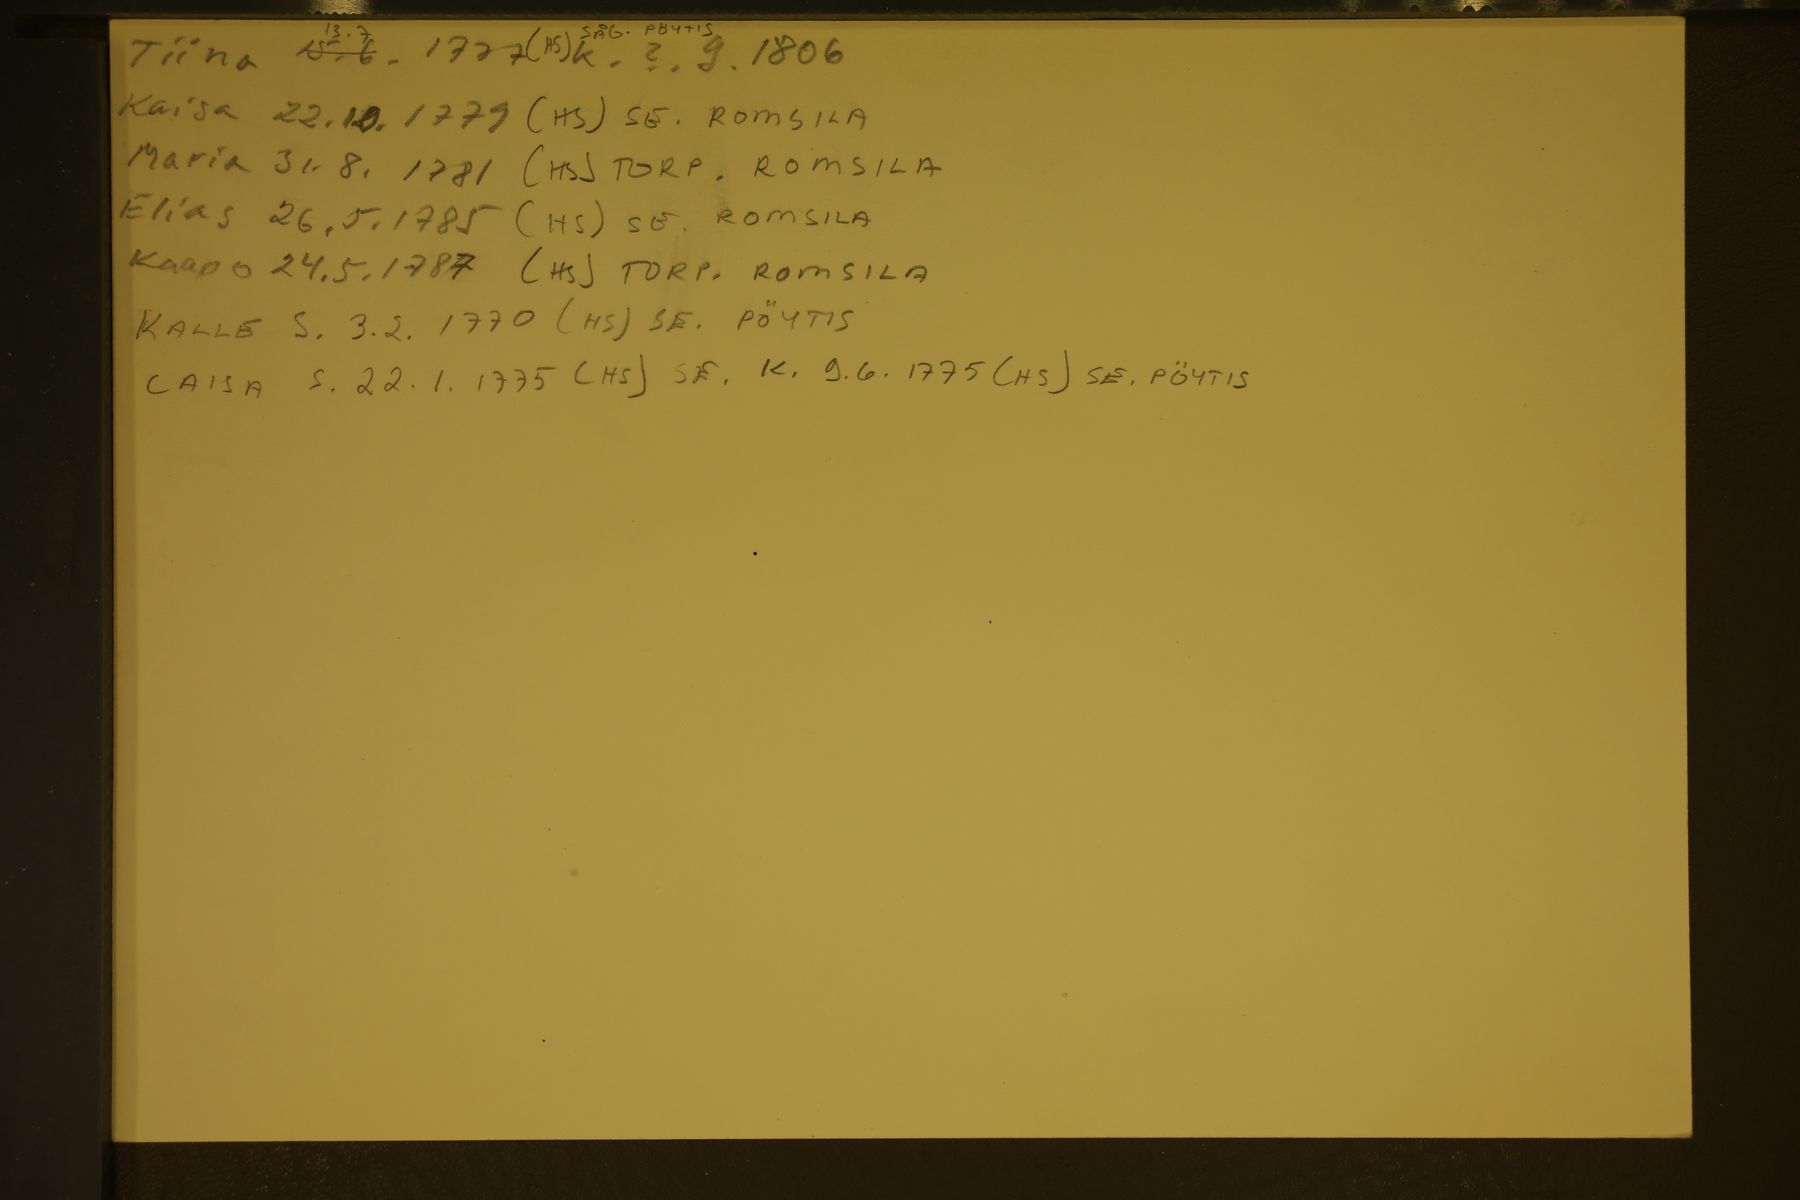 13.7 SÅG. PÖYTIS
Tiina 15.6. 1777 (HS) k. ?. 9. 1806
Kaisa 22.10. 1779 (HS) SE. ROMSILA
Maria 31.8. 1781 (HS) TORP. ROMSILA
Elias 26.5.1785 (HS) SE. ROMSILA
Kaapo 24.5.1787 (HS) TORP. ROMSILA
KALLE S. 3.2. 1770 (HS) SE. PÖYTIS
CAISA S. 22.1. 1775 (HS) SE. K. 9.6. 1775 (HS) SE. PÖYTIS